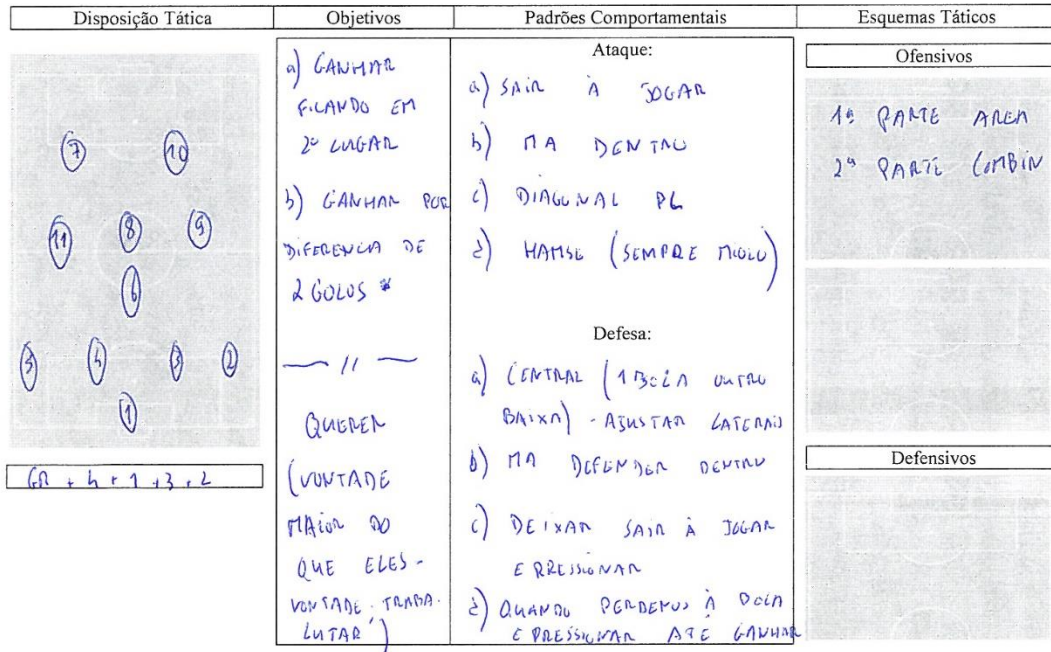 Disposição Tática
7 10
11 8 9
6
5 4 3 2
1
GR + 4 + 1 + 3 + 2
Objetivos
a) GANHAR
FICANDO EM
2º LUGAR
b) GANHAR POR
DIFERENCIA DE
2 GOLOS *
— // —
QUERER
(VONTADE
MAIOR DO
QUE ELES -
VONTADE. TRABA.
LUTAR)
Padrões Comportamentais
Ataque:
a) SAIR À JOGAR
b) MA DENTRO
c) DIAGONAL PL
d) (SEMPRE MIOLO)
Defesa:
a) CENTRAL (1 BOLA OUTRO
BAIXA) - AJUSTAR LATERAIS
b) MA DEFENDER DENTRO
c) DEIXAR SAIR À JOGAR
E PRESSIONAR
d) QUANDO PERDEMOS À BOLA
E PRESSIONAR ATE GANHAR
Esquemas Táticos
Ofensivos
1ª PARTE AREA
2ª PARTE COMBIN
Defensivos